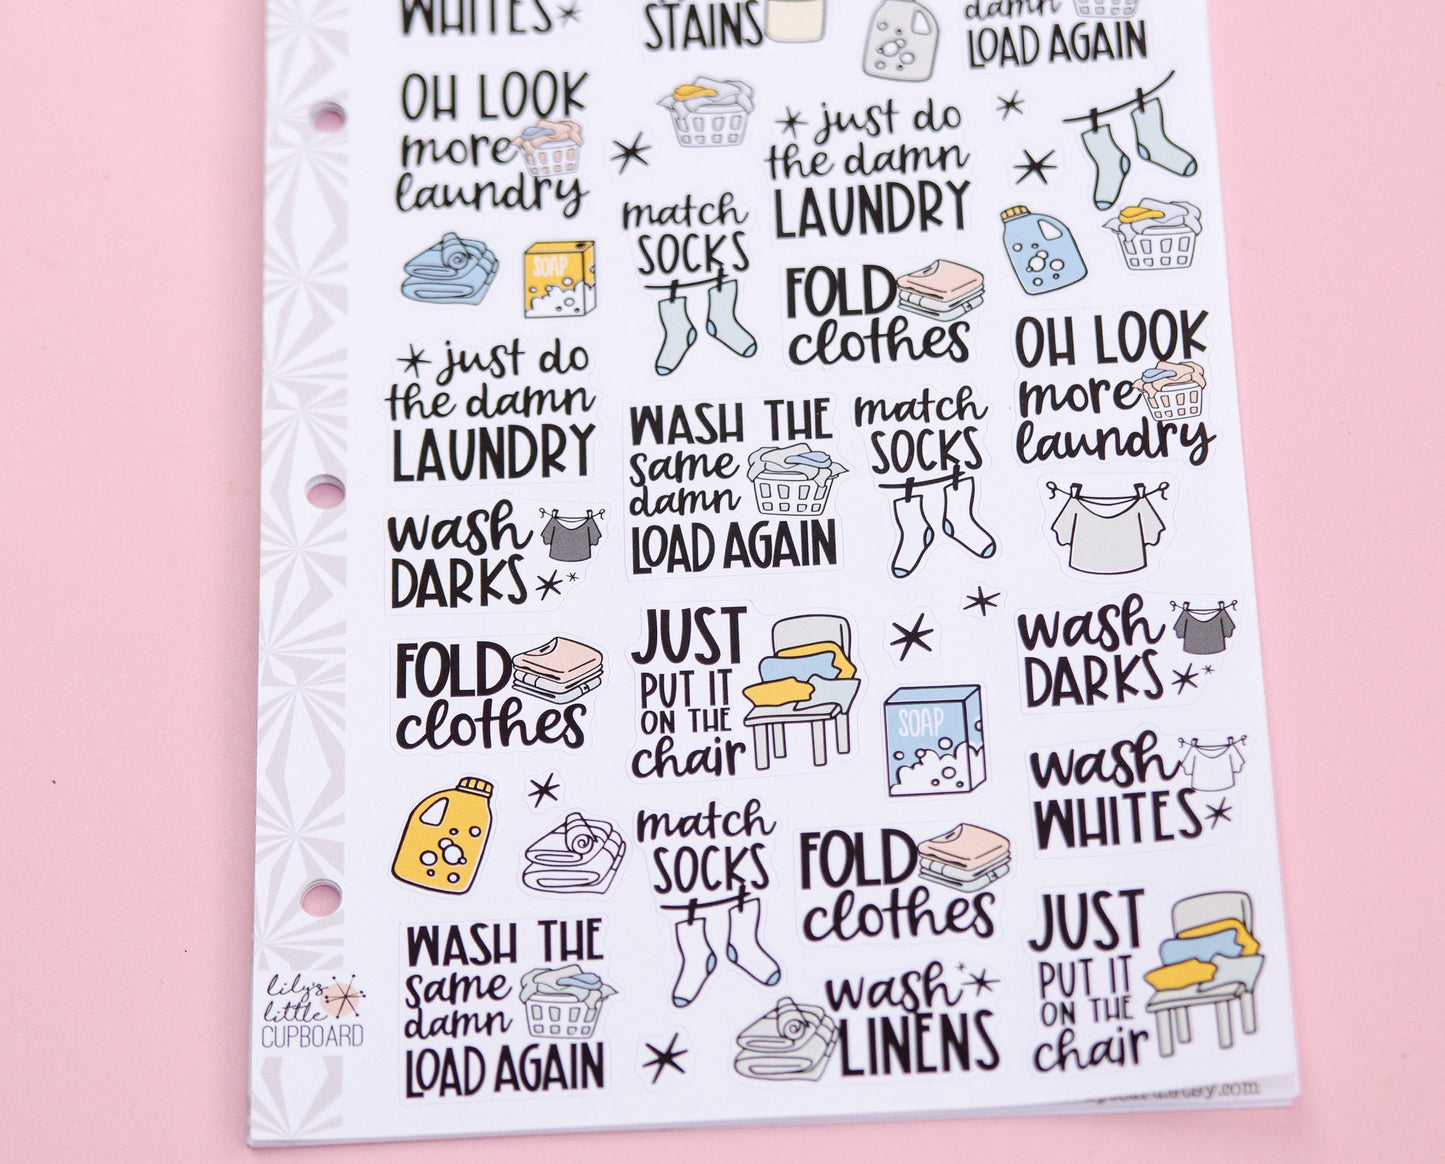 WHITES
STAINS
damn
LOAD AGAIN
OH LOOK
more
laundry
just do
the damn
LAUNDRY
match
SOCKS
SOAP
FOLD
clothes
OH LOOK
more
laundry
just do
the damn
LAUNDRY
WASH THE
same
damn
LOAD AGAIN
match
SOCKS
wash
DARKS
JUST
PUT IT
ON THE
chair
wash
DARKS
FOLD
clothes
SOAP
wash
WHITES
match
SOCKS
FOLD
clothes
JUST
PUT IT
ON THE
chair
WASH THE
same
damn
LOAD AGAIN
wash
LINENS
lily's
little
CUPBOARD